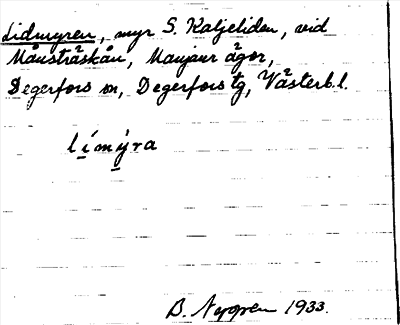 Lidmyren, myr S. Kaljeliden, vid
Månsträskån, Manjaur ägor,
Degerfors sn, Degerfors tg, Västerb. l.
límýra
B. Nygren 1933.